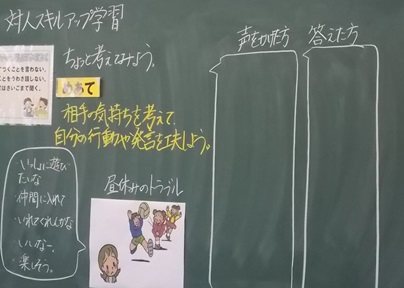 対人スキルアップ学習
つくことを言わない。
とをうわさ話しない。
はさいごまで聞く。
ちょっと考えてみよう。
めあて
相手の気持ちを考えて、
自分の行動や発言を工夫しよう。
・いっしょに遊び
たいな
・仲間に入れて
・いれてくれんかな
・いいなー。
・楽しそう。
昼休みのトラブル
声をかけた方
答えた方